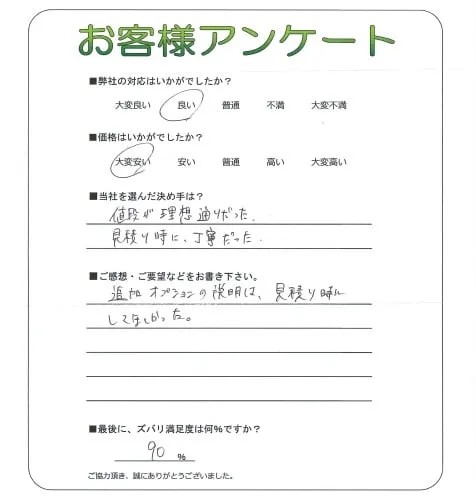 お客様アンケート
■弊社の対応はいかがでしたか？
大変良い 良い 普通 不満 大変不満
■価格はいかがでしたか？
大変安い 安い 普通 高い 大変高い
■当社を選んだ決め手は？
値段が理想通りだった.
見積り時に、丁寧だった.
■ご感想・ご要望などをお書き下さい。
追加オプションの説明は、見積り時に
してほしかった。
■最後に、ズバリ満足度は何％ですか？
90 %
ご協力頂き、誠にありがとうございました。